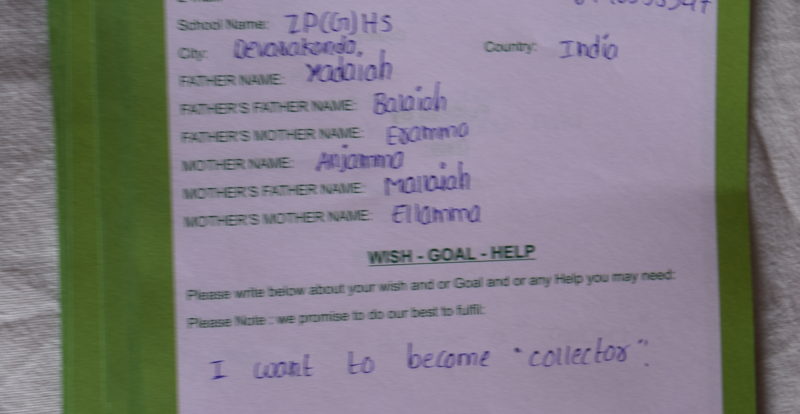 School Name: ZP(G)HS
City: Devarakonda, Country: India
FATHER NAME: Yadaiah
FATHER'S FATHER NAME: Balaiah
FATHER'S MOTHER NAME:
MOTHER NAME: Anjamma
MOTHER'S FATHER NAME: Mallaiah
MOTHER'S MOTHER NAME: Ellamma
WISH - GOAL - HELP
Please write below about your wish and or Goal and or any Help you may need:
Please Note : we promise to do our best to fulfil:
I want to become "collector".